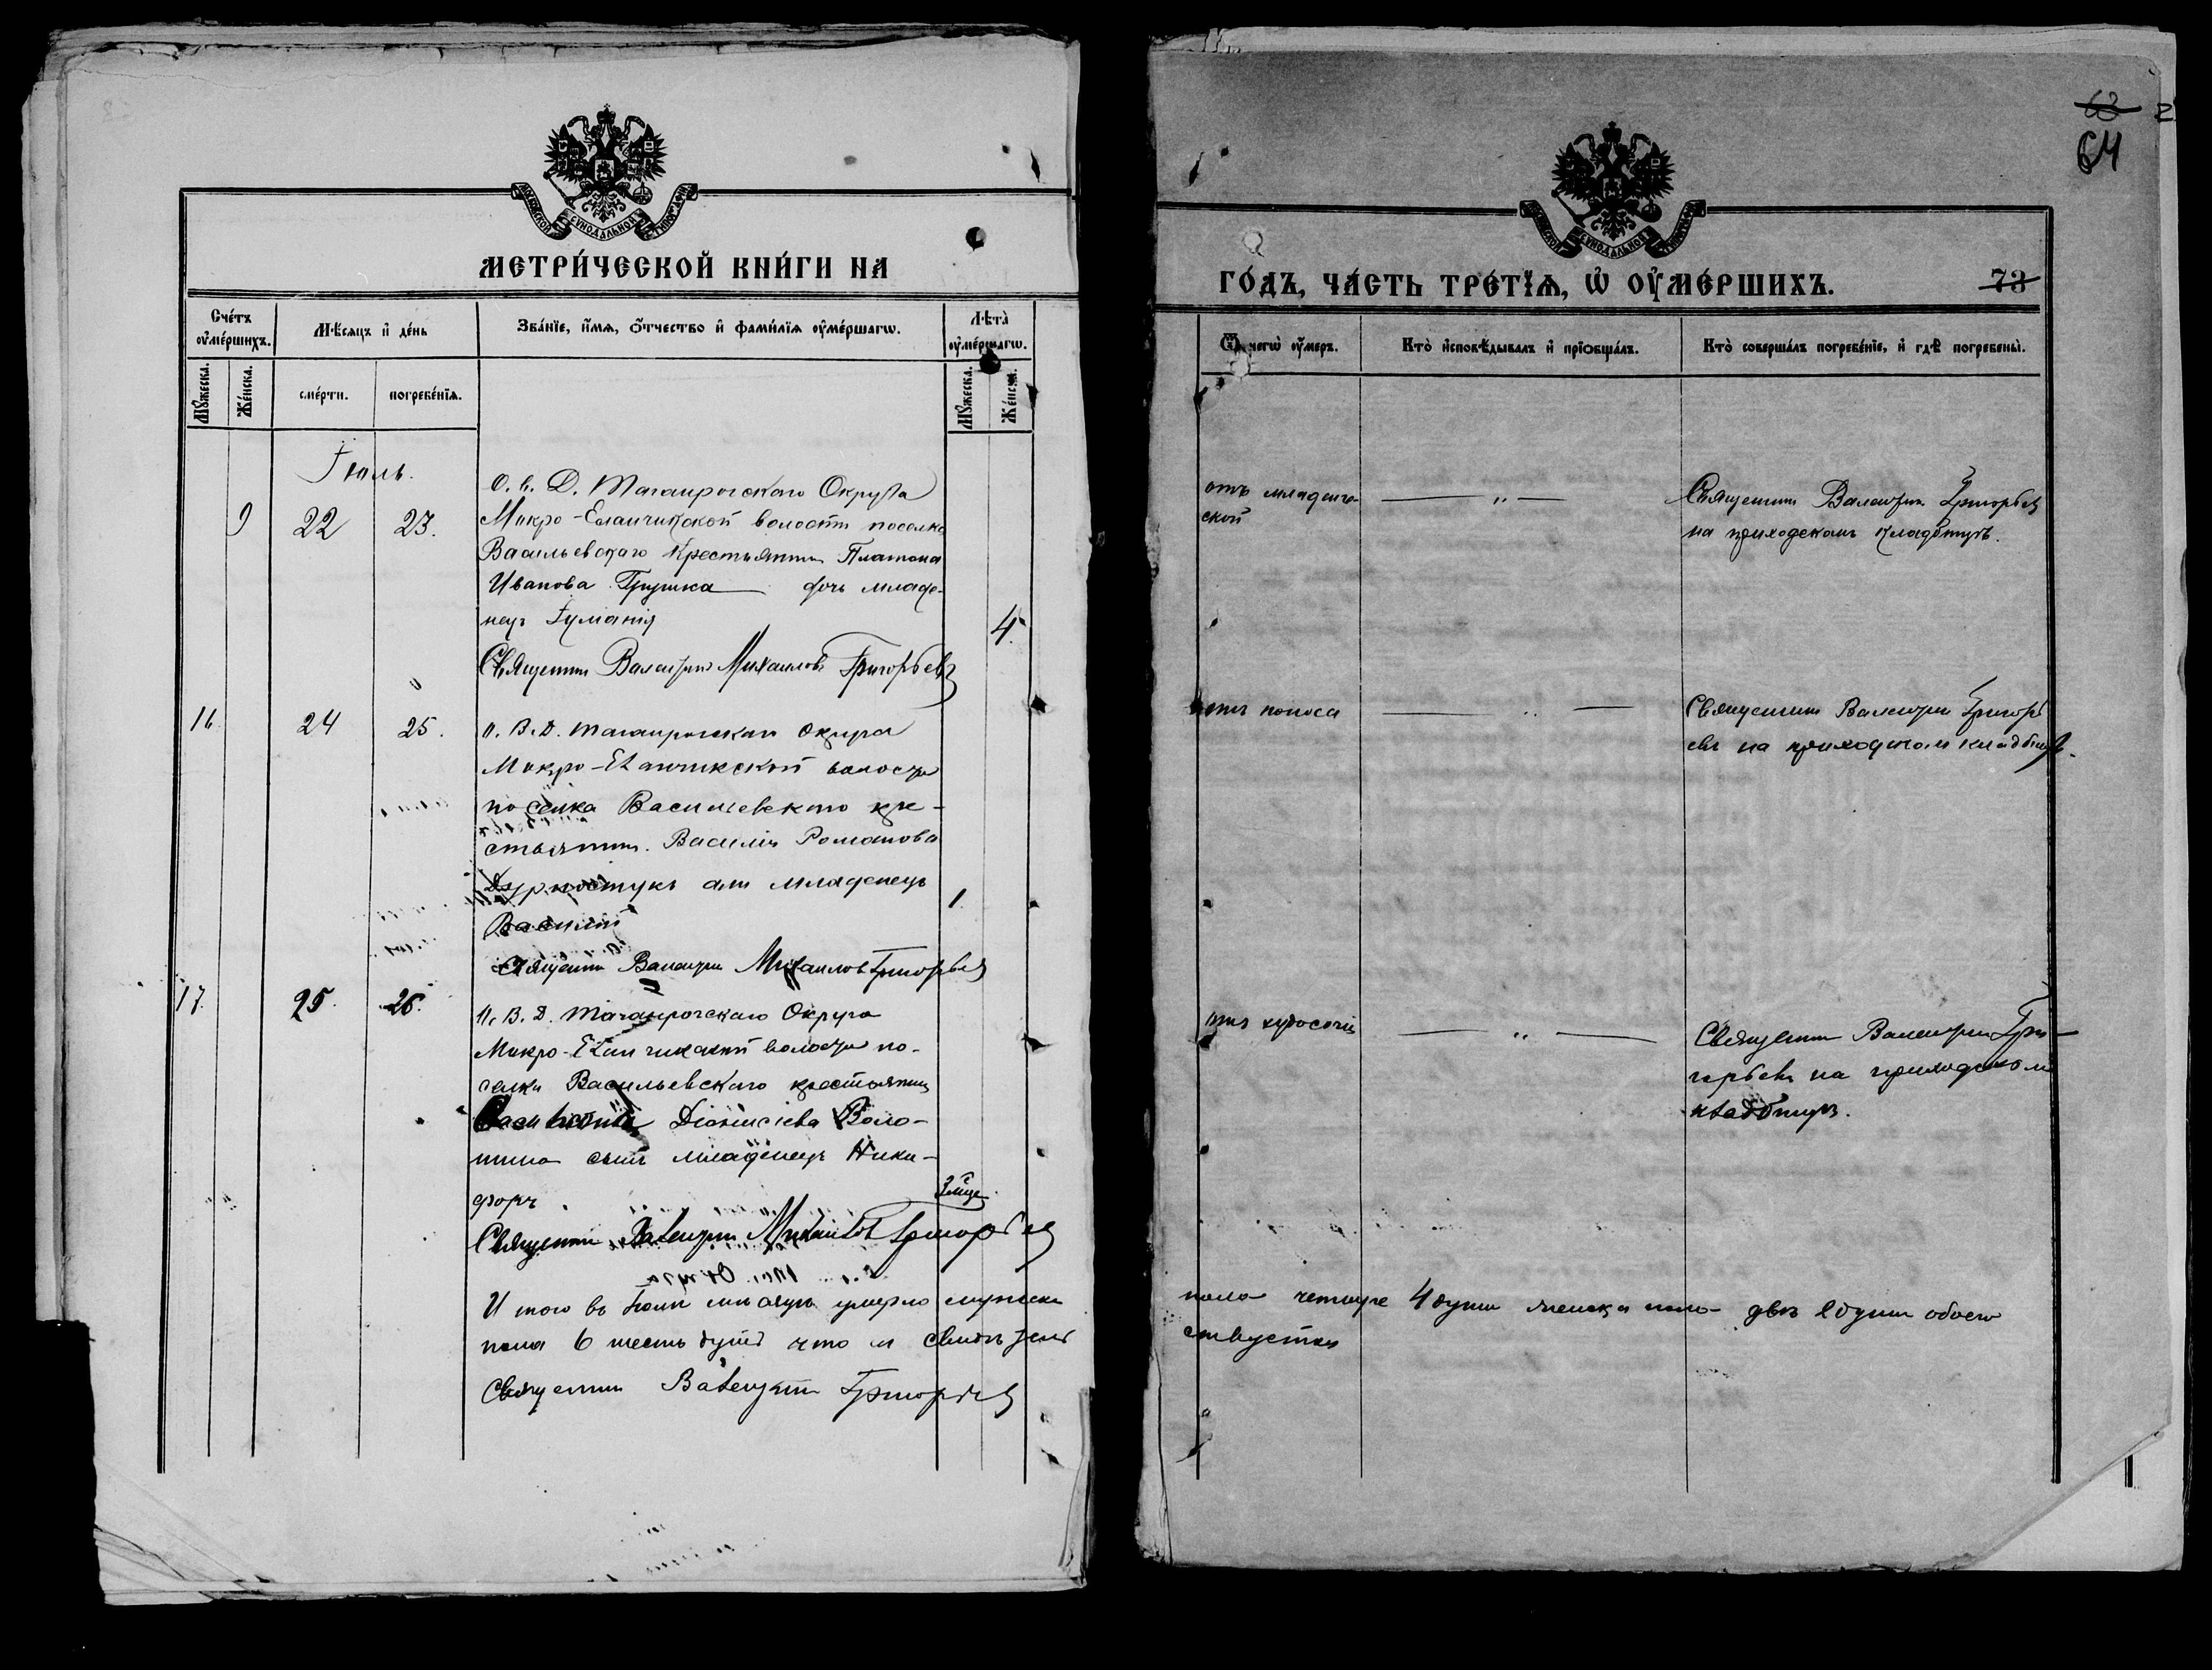 МЕТРИ́ЧЕСКОЙ КНИ́ГИ НА
Сче́тъ ᲂу҆ме́ршихъ.
Мѣ́сяцъ и҆ де́нь
Зва́нїе, и҆́мѧ, ѻ҆́тчество и҆ фами́лїѧ ᲂу҆ме́ршагѡ.
Лѣта̀ ᲂу҆ме́ршагѡ.
Мꙋ́жеска.
Же́нска.
сме́рти.
погребе́нїѧ.
Мꙋ́жеска.
Же́нска.
Іюль.
9 22 23.
О. в. Д. Таганрогскаго Округа
Мокро-Еланчикской волости поселка
Васильевскаго крестьянина Платона
Иванова Грушка дочь младе-
нецъ Іуліанія
4.
Священникъ Валентинъ Михаиловъ Григорьевъ
16 24 25.
О. В. Д. Таганрогскаго Округа
Мокро-Еланчикской волости
поселка Васильевскаго кре-
стьянина Василія Романова
сынъ младенецъ
Василій
1
Священникъ Валентинъ Михаиловъ Григорьевъ
17. 25. 26.
О. В. Д. Таганрогскаго Округа
Мокро-Еланчикской волости по-
селка Васильевскаго крестьянина
Діонисіева Воло-
шина сынъ младенецъ Ники-
форъ
3 мца
Священникъ Валентинъ Михаиловъ Григорьевъ
Итого въ Іюлѣ мѣсяцѣ умерло мужска
пола 6 шесть душъ что и свидѣтель
Священникъ Валентинъ Григорьевъ
63
64
ГО́ДЪ, ЧА́СТЬ ТРЕ́ТЇѦ, Ѡ҆ ОУ҆МЕ́РШИХЪ.
73
Ѿ чегѡ̀ ᲂу҆́меръ.
Кто̀ и҆сповѣ́дывалъ и҆ прїѡбща́лъ.
Кто̀ соверша́лъ погребе́нїе, и҆ гдѣ̀ погребены̀.
отъ младенче-
ской
Священникъ Валентинъ Григорьевъ
на приходскомъ кладбищѣ.
отъ поноса
Священникъ Валентинъ Григорь
евъ на приходскомъ кладбищѣ.
отъ худосочія
Священникъ Валентинъ Гри-
горьевъ на приходскомъ
кладбищѣ.
пола четыре 4 души женска пола двѣ 2 души обоего
ствуетъ